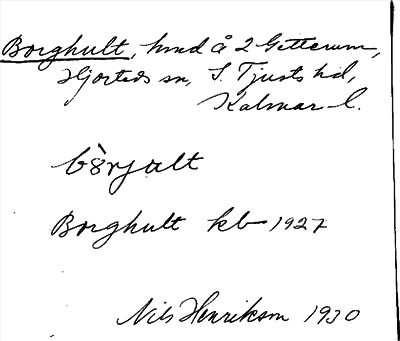 Borghult, hmd å 2 Getterum,
Hjorteds sn, S. Tjusts hd,
Kalmar l.
bò̀rjalt
Borghult kb 1927
Nils Henrikson 1930